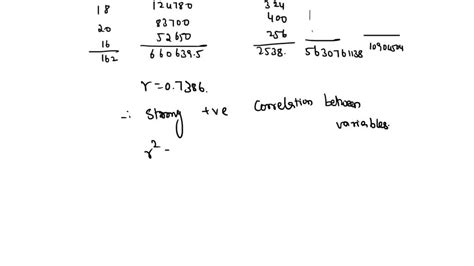 18 124780 324
20 83700 400
16 52650 256
162 660639.5 2538. 5630761138
r=0.7386.
∴ strong +ve correlation between
variables.
r² -